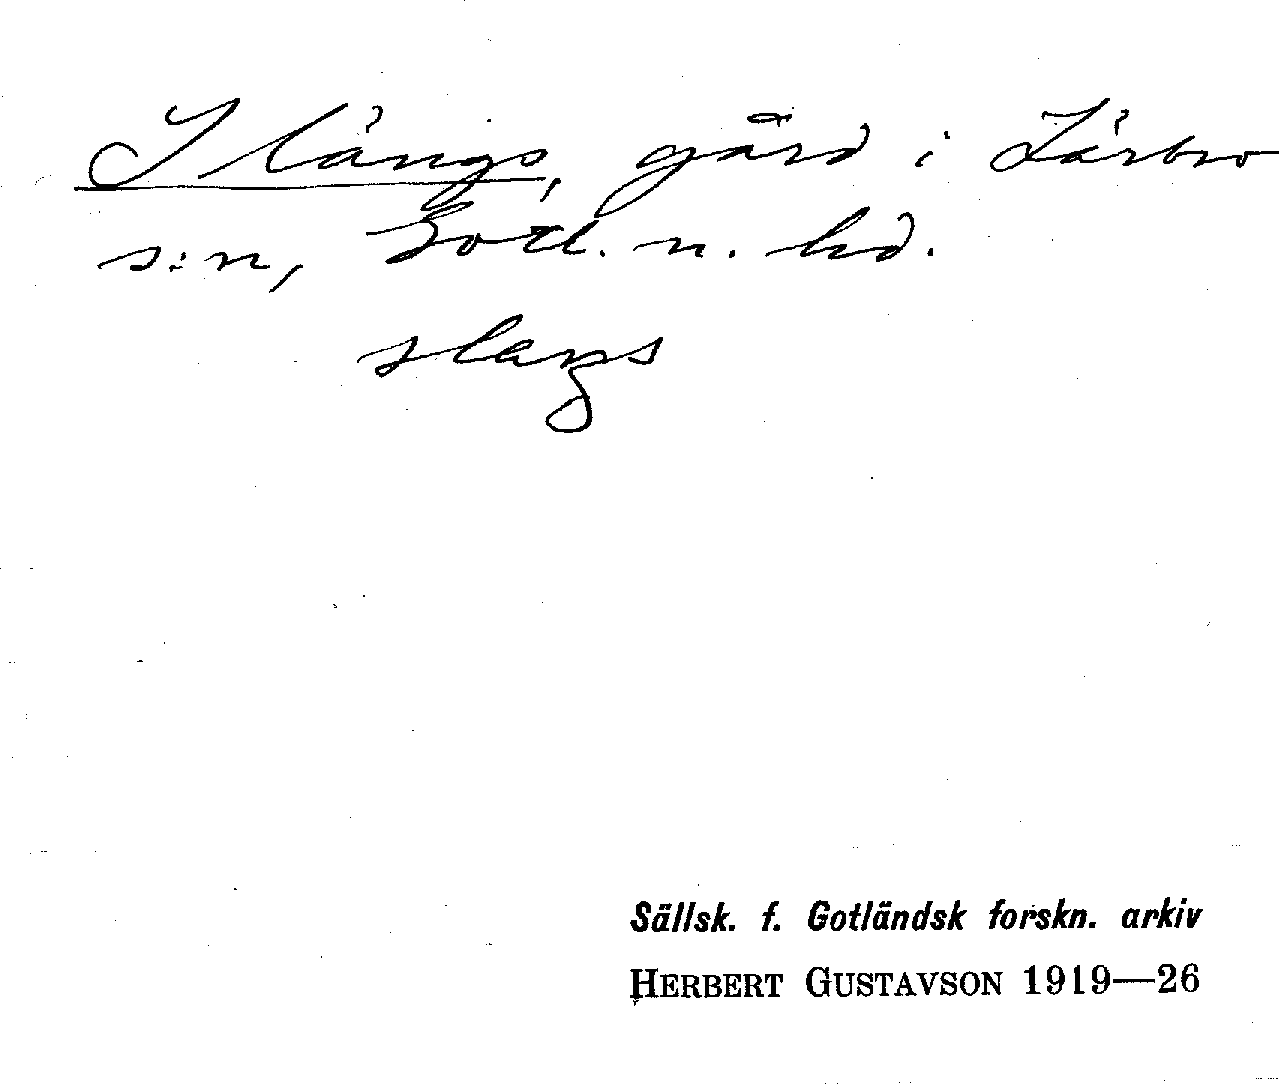 Slängs, gård i Lärbro
s:n, Gotl. n. hd.
slaŋs
Sällsk. f. Gotländsk forskn. arkiv
HERBERT GUSTAVSON 1919—26